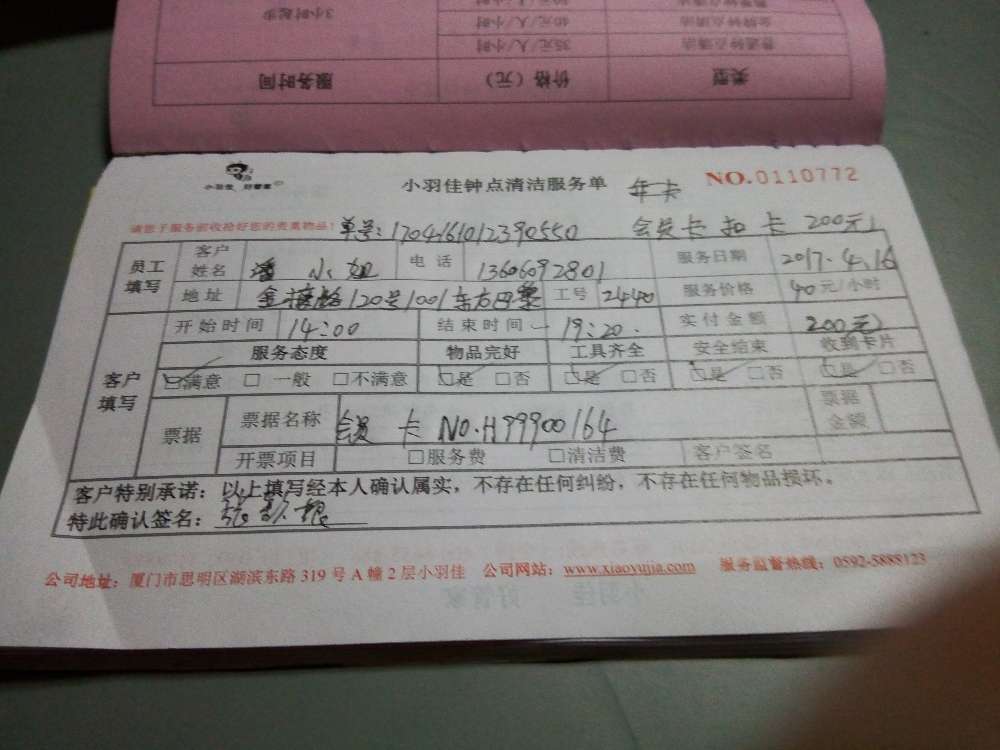 3小时起步
40元/人/小时
金牌钟点清洁
35元/人/小时
普通钟点清洁
服务时间
价格（元）
类型
小羽佳 好管家
小羽佳钟点清洁服务单
年卡
NO.0110772
请您于服务前收拾好您的贵重物品！
单号：1704161012390550
会员卡扣卡200元
员工填写
客户姓名 潘小姐 电话 13606092801 服务日期 2017.4.16
地址 120号1001东方巴黎 工号 2440 服务价格 40元/小时
客户填写
开始时间 14:00 结束时间 19:20. 实付金额 200元
服务态度 物品完好 工具齐全 安全结束 收到卡片
□满意 □一般 □不满意 □是 □否 □是 □否 □是 □否 □是 □否
票据
票据名称 会员卡 NO.H99900164 票据金额
开票项目 □服务费 □清洁费 客户签名
客户特别承诺：以上填写经本人确认属实，不存在任何纠纷，不存在任何物品损坏。
特此确认签名：
公司地址：厦门市思明区湖滨东路 319 号 A 幢 2 层小羽佳 公司网站：www.xiaoyujia.com 服务监督热线：0592-5888123